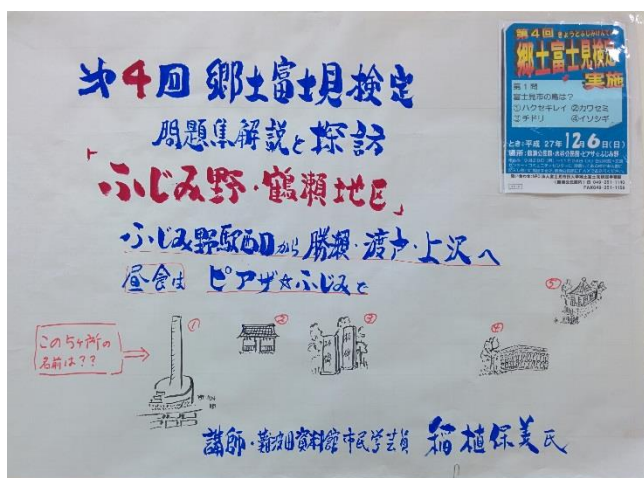 第4回 郷土富士見検定
問題集解説と探訪
「ふじみ野・鶴瀬地区」
ふじみ野駅西口から勝瀬・渡戸・上沢へ
昼食は ピアザ☆ふじみで
この5ヶ所の
名前は??
①
②
③
④
⑤
講師・難波田資料館市民学芸員 稲植保美氏
第4回 きょうどふじみけんてい
郷土富士見検定
実施
第1問
富士見市の鳥は?
①ハクセキレイ ②カワセミ
③チドリ ④イソシギ
とき:平成 27年12月6日(日)